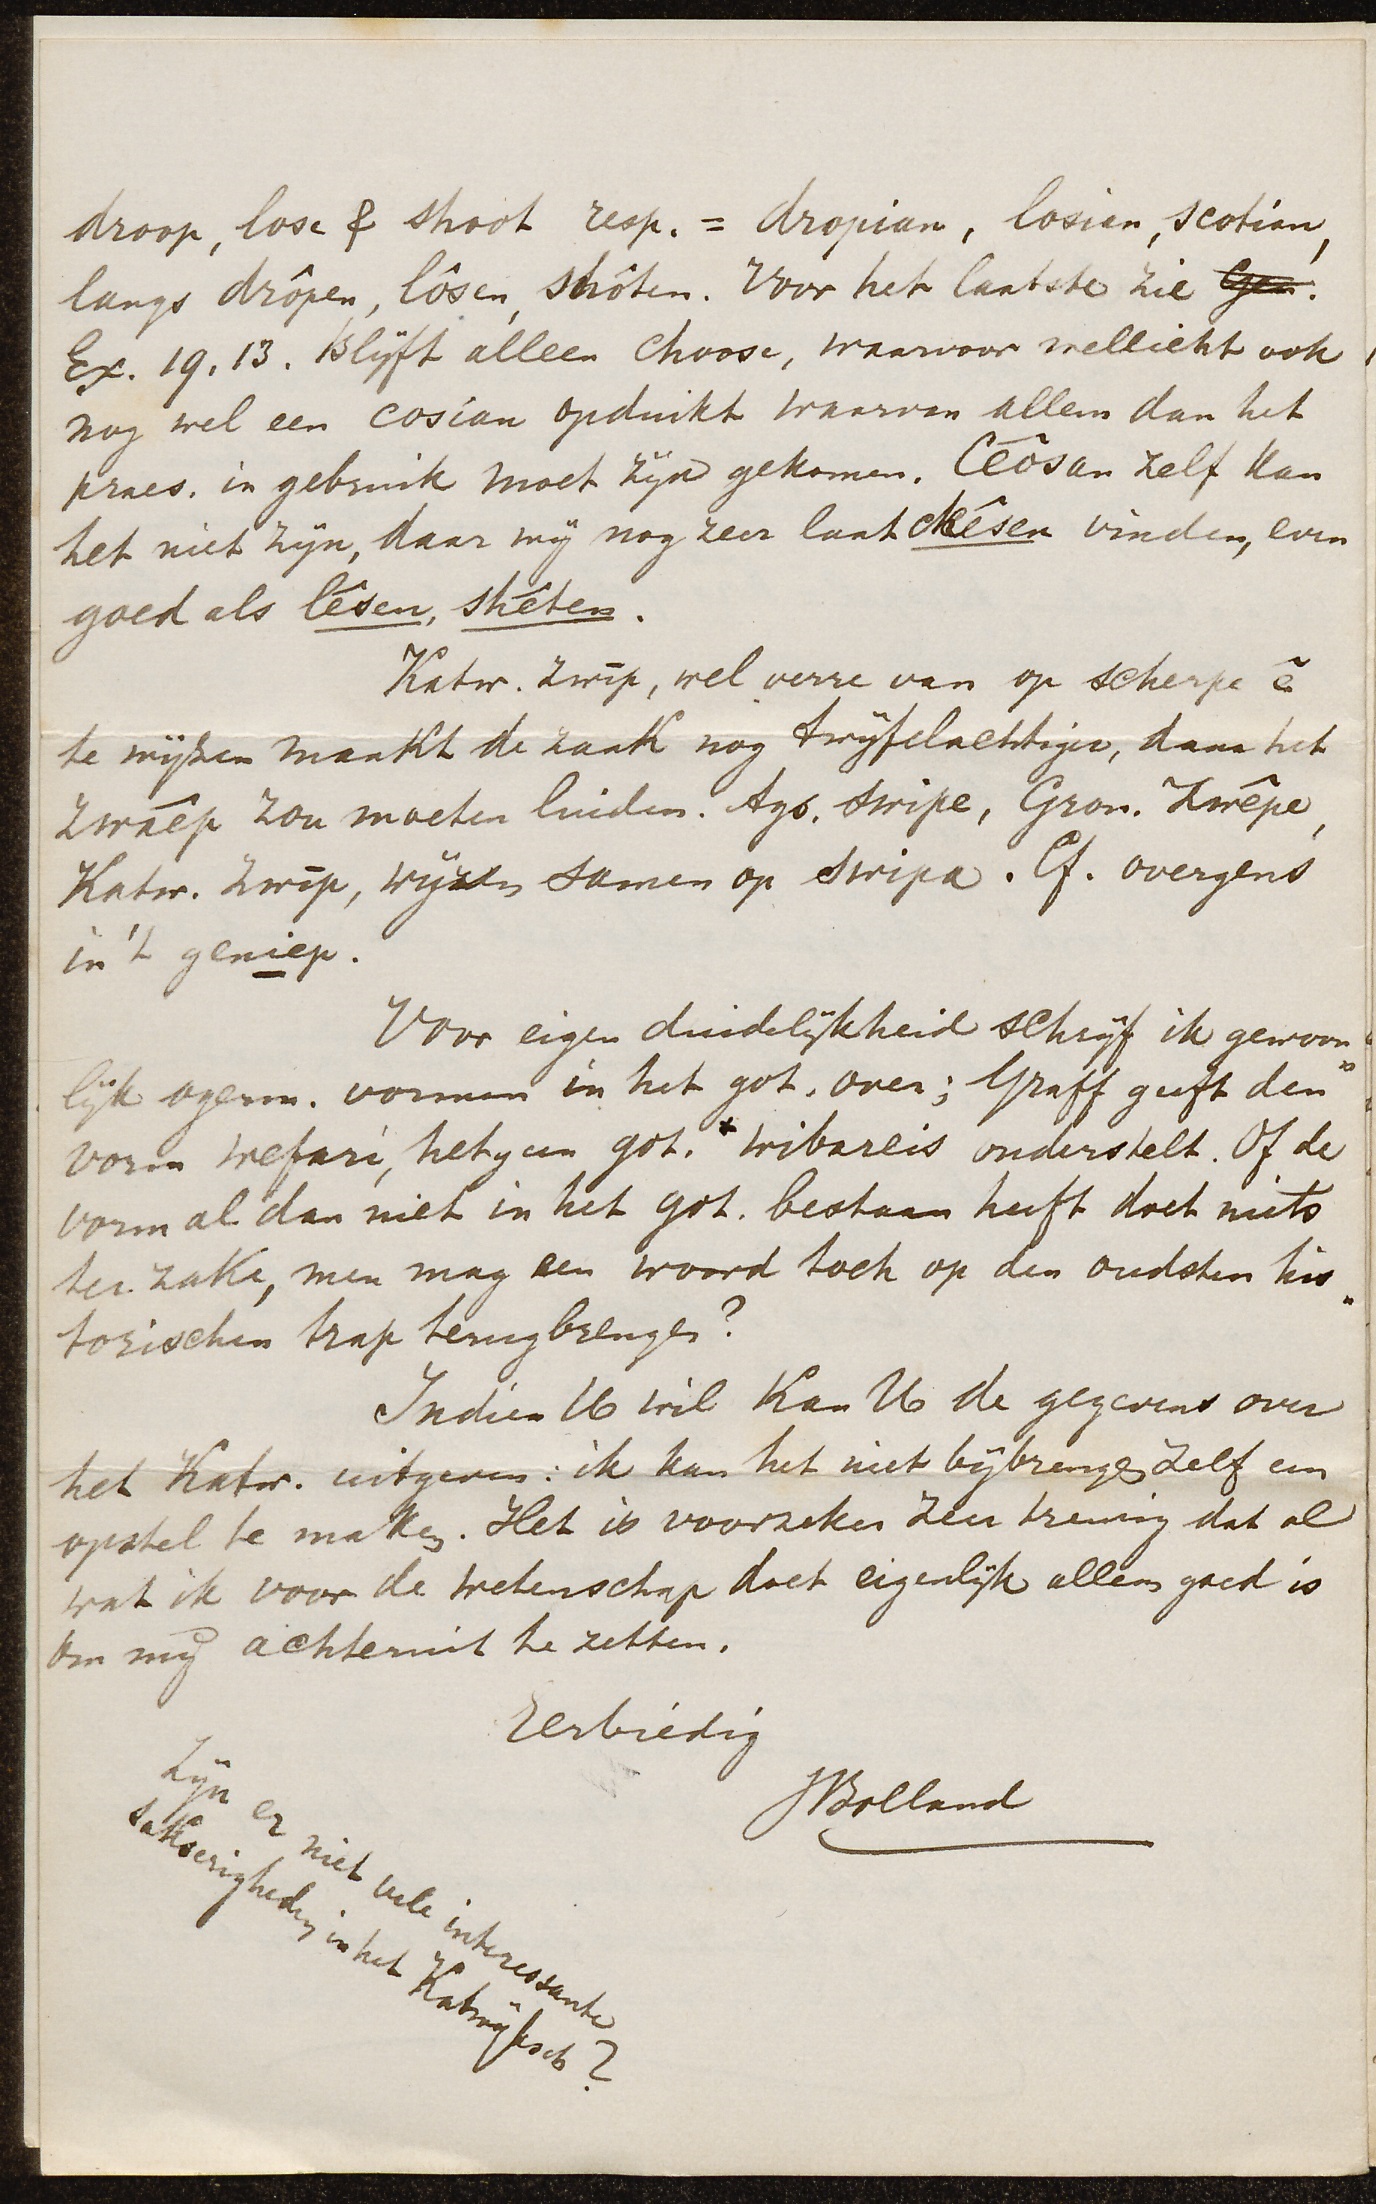 droop, lose & shoot resp. = dropian, losian, scotian,
langs drôpen, lôsen, shôten. Voor het laatste zie Gen.
Ex. 19.13. Blijft alleen choose, waarvoor wellicht ook
nog wel een cosian opduikt waarvan alleen dan het
praes. in gebruik moet zijn gekomen. Cēôsan zelf kan
het niet zijn, daar wij nog zeer laat chêsen vinden, even
goed als lêsen, shêten.
Katw. zwīp, wel verre van op scherpe ê
te wijzen maakt de zaak nog twijfelachtiger, daar het
zwaêp zou moeten luiden. Ags. swipe, Gron. Zwêpe,
Katw. zwīp, wijzen samen op swipa. Cf. overgens
in 't geniep.
Voor eigen duidelijkheid schrijf ik gewoon„
lijk ogerm. vormen in het got. over; Graff geeft den
vorm wefari, hetgeen got. * wibareis onderstelt. Of de
vorm al dan niet in het got. bestaan heeft doet niets
ter zake, men mag een woord toch op den oudsten his„
torischen trap terugbrengen?
Indien U wil kan U de gegevens over
het Katw. uitgeven: ik kan het niet bijbrengen zelf een
opstel te maken. Het is voorzeker zeer treurig dat al
wat ik voor de wetenschap doet eigenlijk alleen goed is
om mij achteruit te zetten.
Eerbiedig
JBolland
Zijn er niet vele interessante
sakserigheden in het Katwijksch?